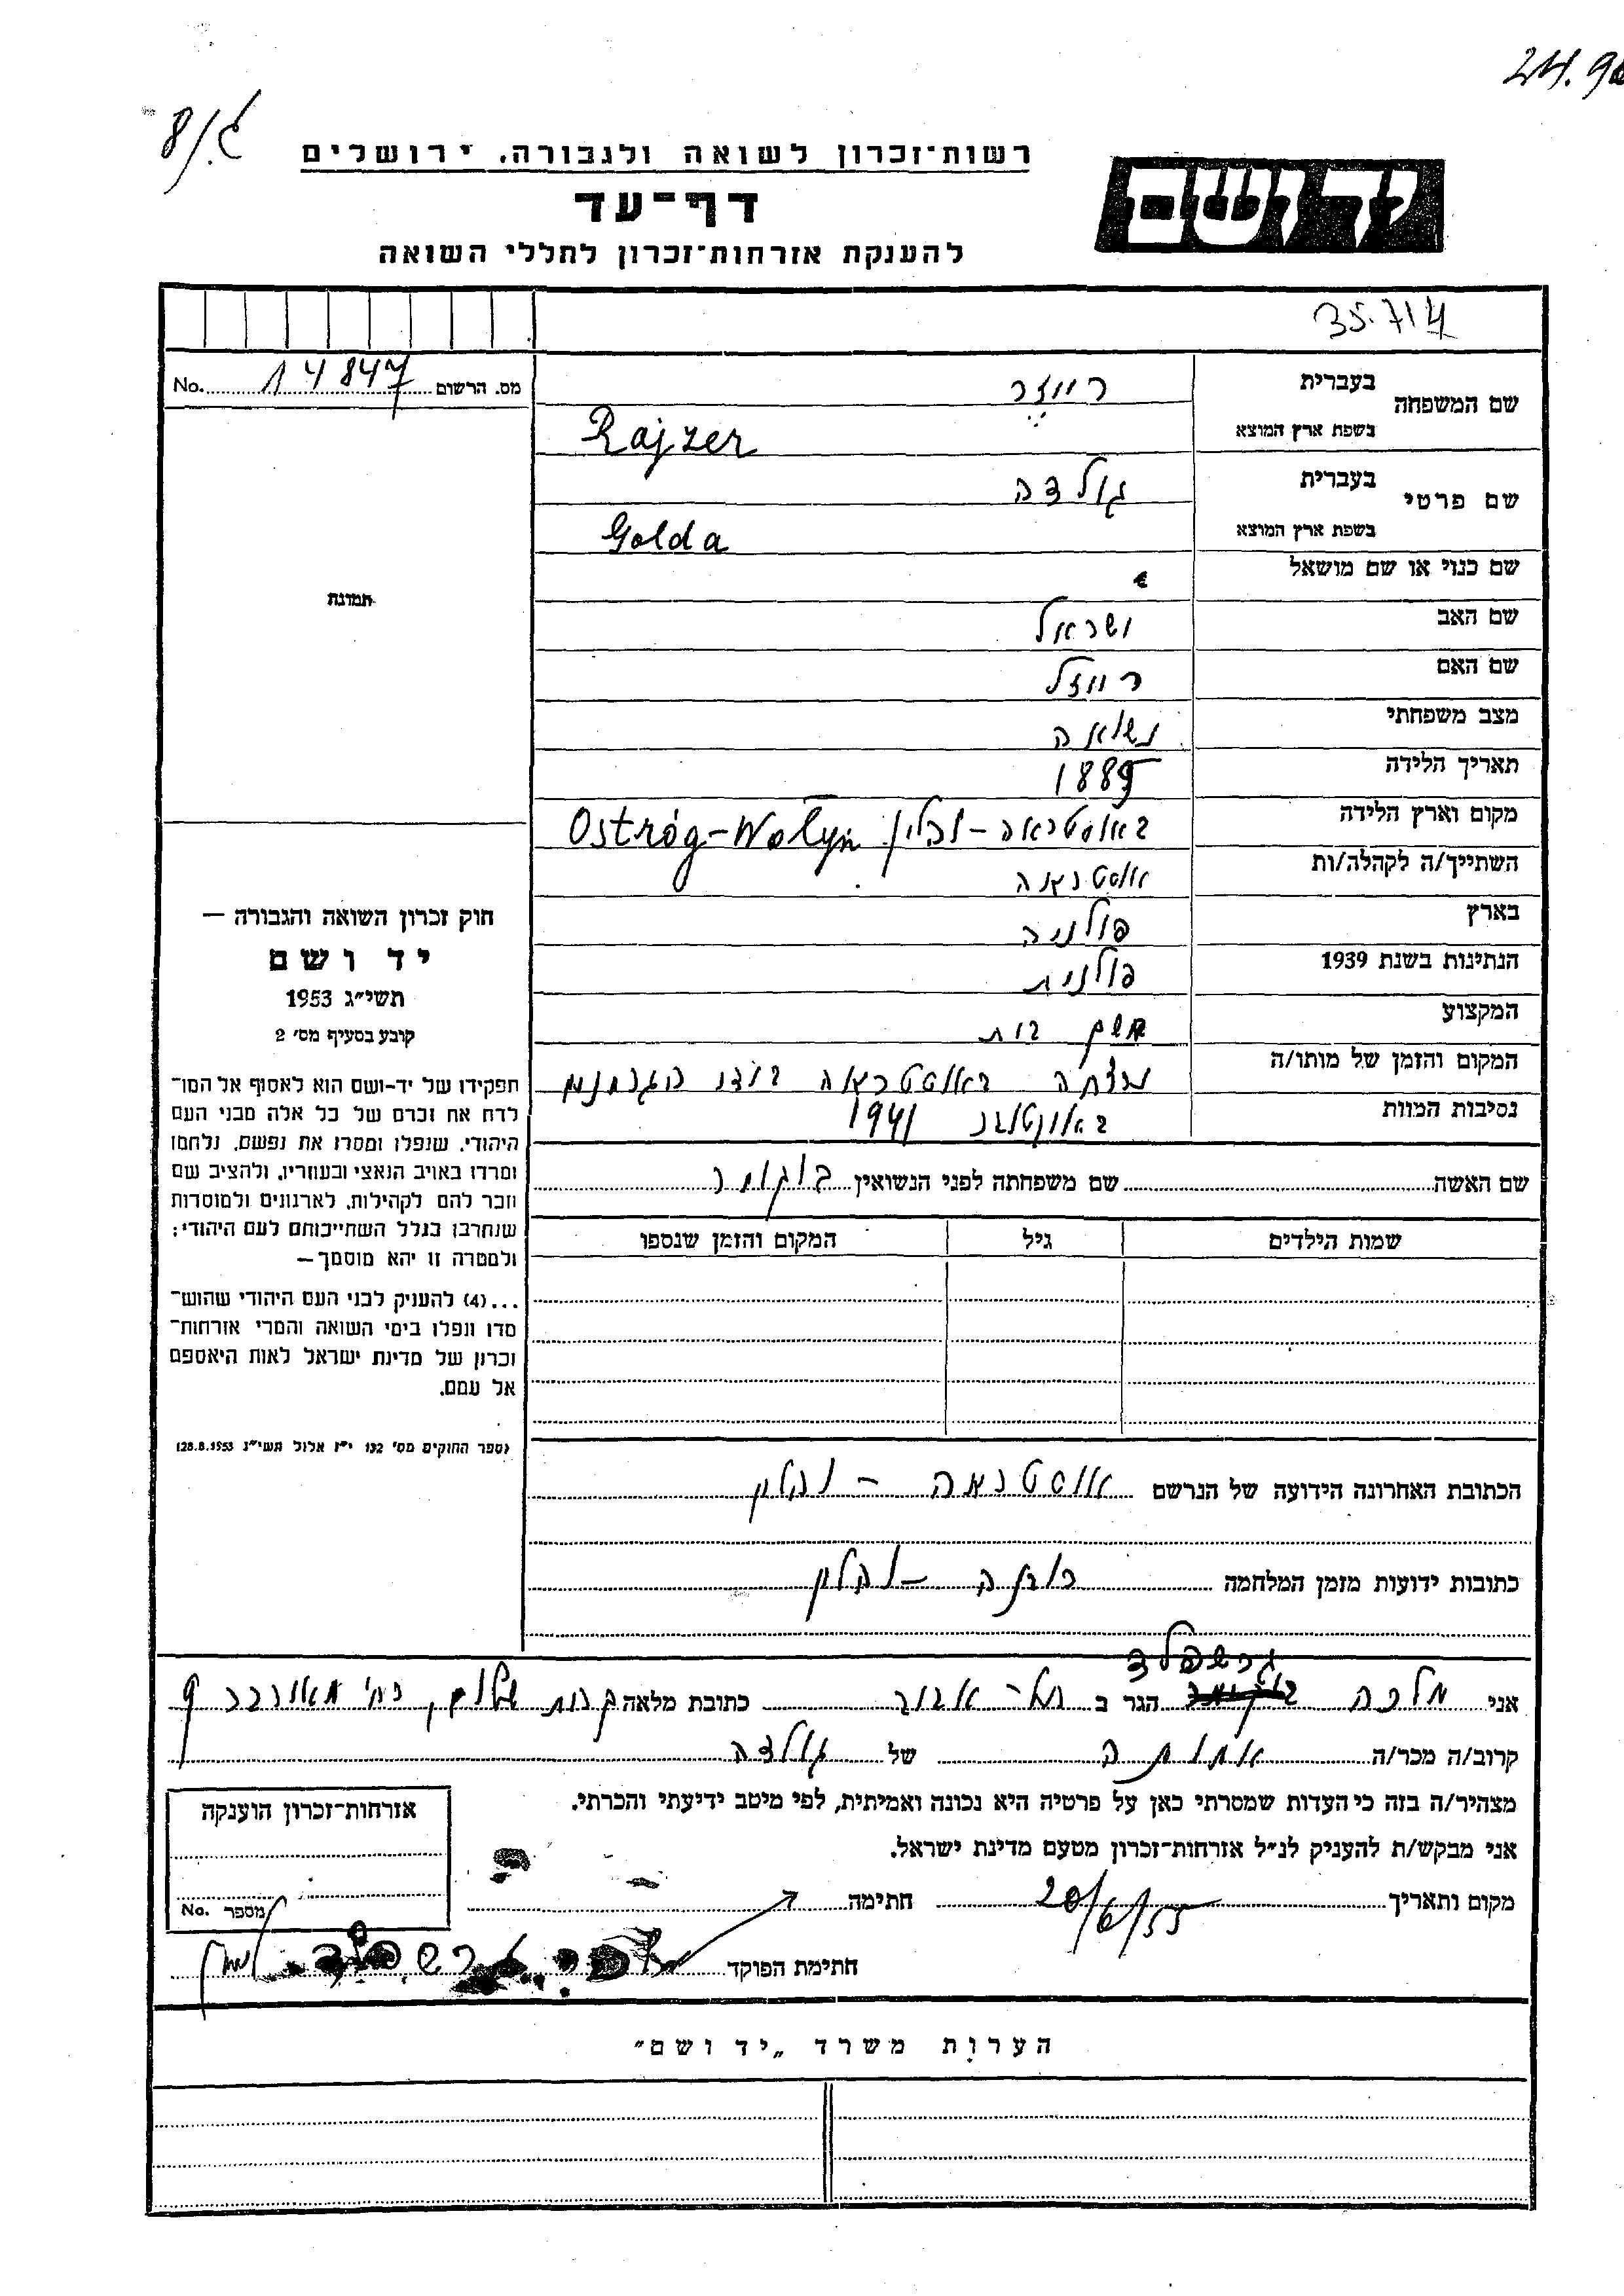 24.9
8/ג.
רשות־זכרון לשואה ולגבורה, ירושלים
יד ושם
דף־עד
להענקת אזרחות־זכרון לחללי השואה
35.714
מס. הרשום 14847 No.
שם המשפחה
בעברית רייזר
בשפת ארץ המוצא Rajzer
שם פרטי
בעברית גולדה
בשפת ארץ המוצא Golda
שם כנוי או שם מושאל
תמונה
שם האב ישראל
שם האם רייזל
מצב משפחתי נשואה
תאריך הלידה 1889
מקום וארץ הלידה באוסטראה - ווהלין Ostróg-Wołyń
השתייך/ה לקהלה/ות אוסטראה
בארץ פולניה
הנתינות בשנת 1939 פולנית
המקצוע משק בית
המקום והזמן של מותו/ה נרצחה באוסטראה בידי הגרמנים
נסיבות המוות 1941
שם האשה שם משפחתה לפני הנשואין
שמות הילדים גיל המקום והזמן שנספו
חוק זכרון השואה והגבורה —
יד ושם
תשי״ג 1953
קובע בסעיף מס׳ 2
תפקידו של יד-ושם הוא לאסוף אל המו־
לדת את זכרם של כל אלה מבני העם
היהודי, שנפלו ומסרו את נפשם, נלחמו
ומרדו באויב הנאצי ובעוזריו, ולהציב שם
וזכר להם לקהילות, לארגונים ולמוסדות
שנחרבו בגלל השתייכותם לעם היהודי;
ולמטרה זו יהא מוסמך—
...(4) להעניק לבני העם היהודי שהוש־
מדו ונפלו בימי השואה והמרי אזרחות־
זכרון של מדינת ישראל לאות היאספם
אל עמם.
(ספר החוקים מס׳ 132 י״ז אלול תשי״ג 28.8.1953)
הכתובת האחרונה הידועה של הנרשם אוסטראה - ווהלין
כתובות ידועות מזמן המלחמה - ווהלין
גרשפלד
אני מלכה הגר ב תל-אביב כתובת מלאה קרית שלום, רח׳ 9
קרוב/ה מכר/ה אחותה של גולדה
מצהיר/ה בזה כי העדות שמסרתי כאן על פרטיה היא נכונה ואמיתית, לפי מיטב ידיעתי והכרתי.
אני מבקש/ת להעניק לנ״ל אזרחות־זכרון מטעם מדינת ישראל.
מקום ותאריך 20/6/55 חתימה
חתימת הפוקד
אזרחות־זכרון הוענקה
מספר No.
הערות משרד „יד ושם״